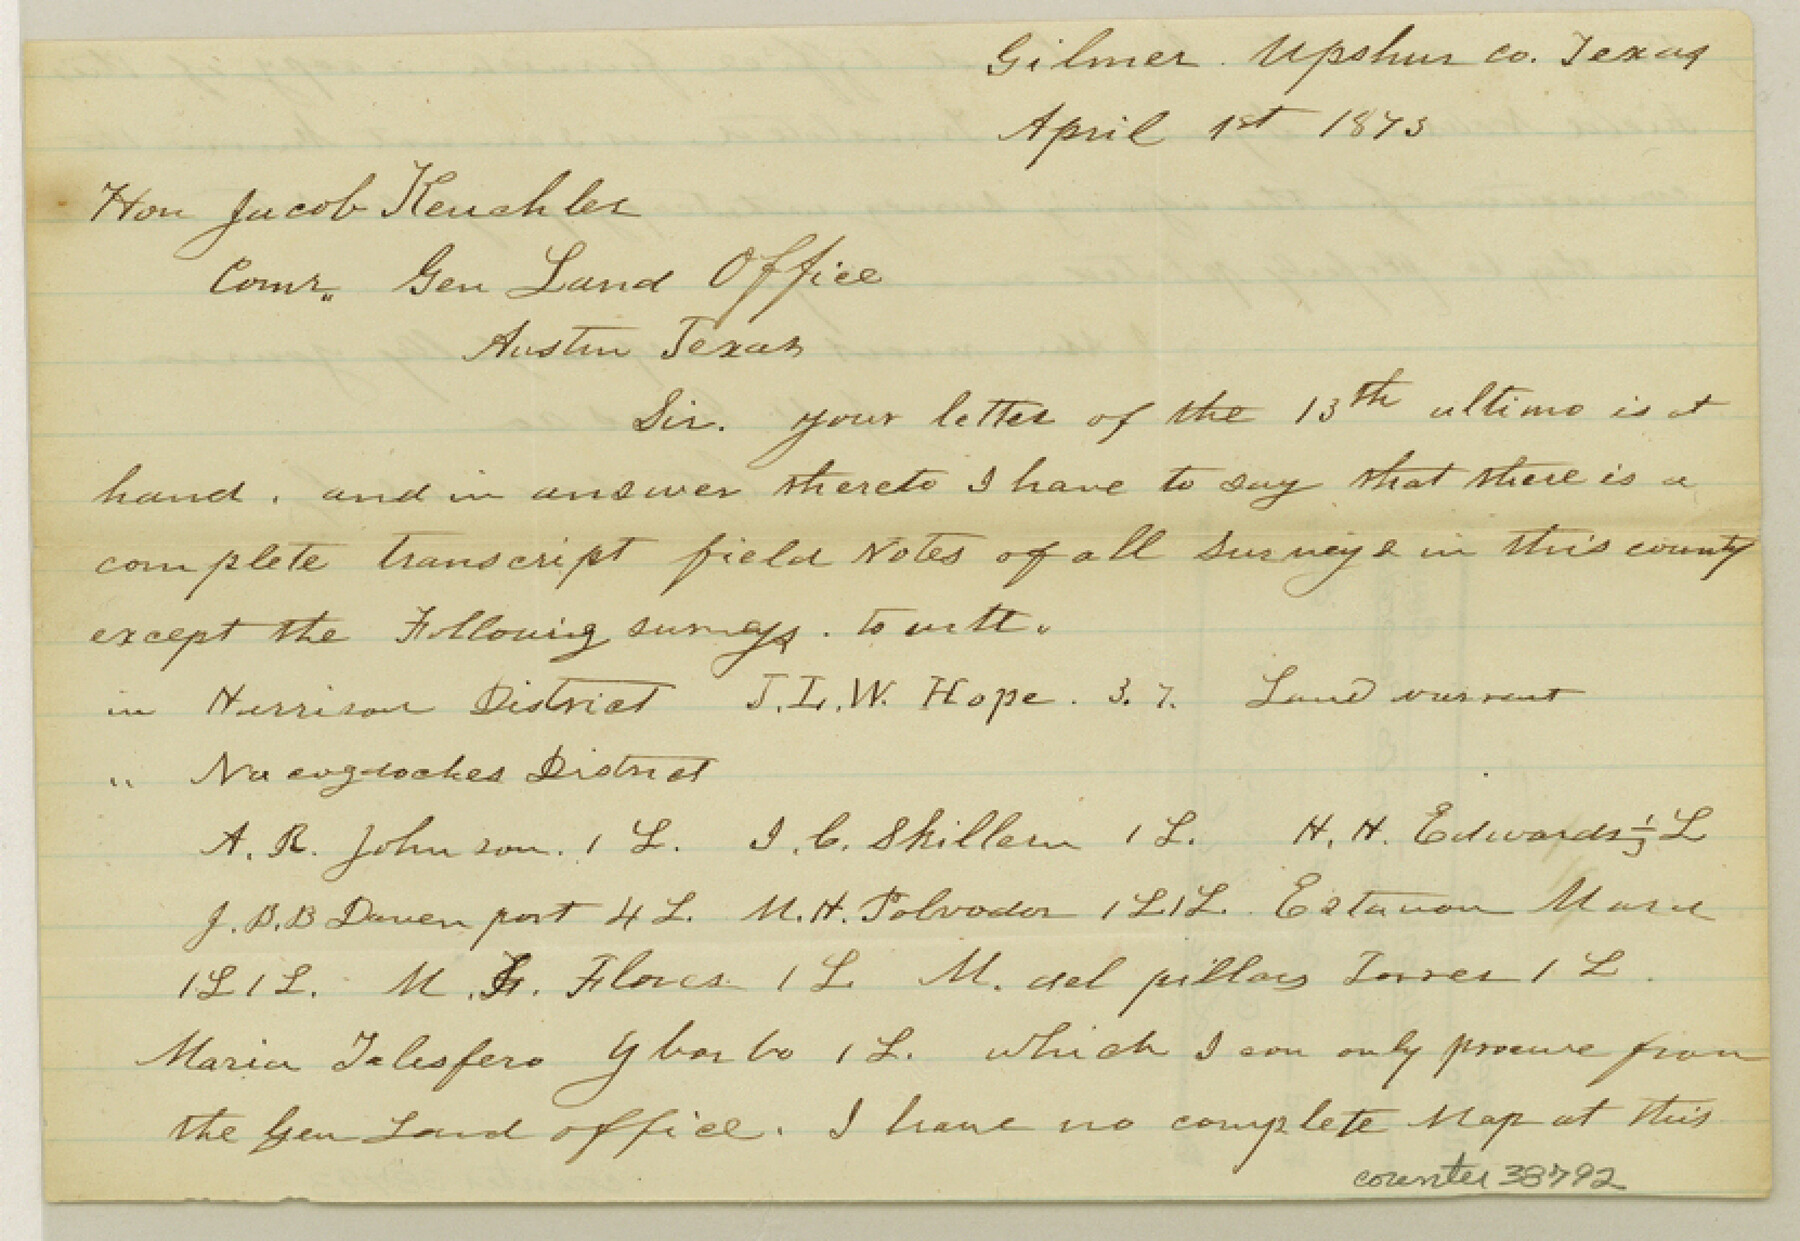 Gilmer. Upshur co. Texas
April 1st 1873
Hon Jacob Keuchler
Comr,, Gen Land Office
Austin Texas
Sir. your letter of the 13th ultimo is at
hand. and in answer thereto I have to say that there is a
complete transcript field Notes of all Surveys in this county
except the Following surveys. to witt.
in Harrison District J.L.W. Hope. 3.7. Land warrent
,, Nacogdoches District
A. R. Johnson. 1 L. I. C. Skillern 1 L. H. H. Edwards ½ L
J.B.B Davenport 4 L. M.H. Polvodor 1L1L. Estavon Mara
1L1L. M. Flores 1 L M. del pillars Torres 1 L.
Maria Telesfero Ybarbo 1 L. which I can only procure from
the Gen Land office. I have no complete Map at this
counter 38792